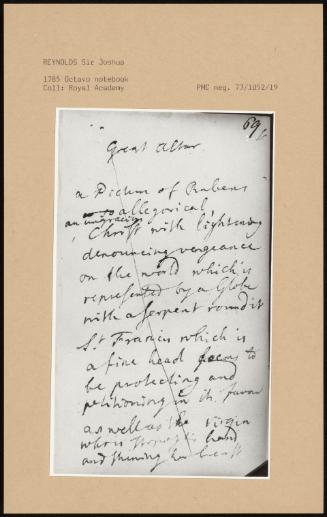 REYNOLDS Sir Joshua
1785 Octavo notebook
Coll: Royal Academy
PMC neg. 73/1052/19
69
Great Altar.
a Picture of Rubens
so allegorical
an ungracious
Christ with lightening
denouncing vergeance
on the world which is
represented by a Globe
with a serpent round it
St Francis which is
a fine head seems to
be protecting and
petitioning in its favour
as well as the virgin
who is his hand
and shewing her breast